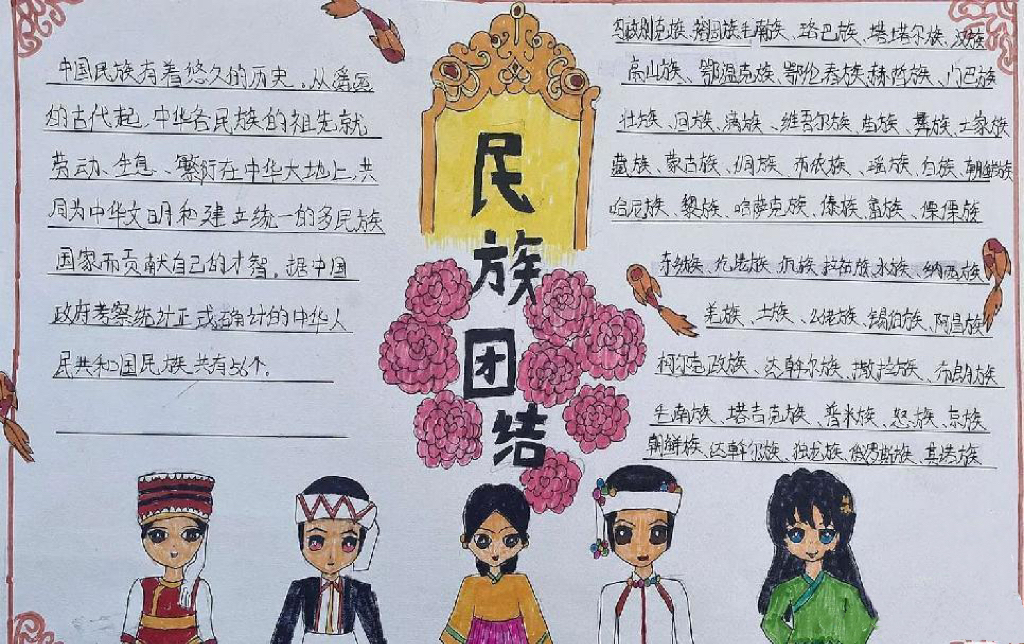 中国民族有着悠久的历史。从遥远
的古代起，中华各民族的祖先就
劳动、生息、繁衍在中华大地上，共
同为中华文明和建立统一的多民族
国家而贡献自己的才智。据中国
政府考察统计正式确计的中华人
民共和国民族共有56个。
民族团结
克族、裕固族、毛南族、珞巴族、塔塔尔族、汉族
高山族、鄂温克族、鄂伦春族、赫哲族、门巴族
壮族、回族、满族、维吾尔族、苗族、彝族、土家族
藏族、蒙古族、侗族、布依族、瑶族、白族、朝鲜族
哈尼族、黎族、哈萨克族、傣族、畲族、傈僳族
东乡族、仡佬族、拉祜族、水族、纳西族
羌族、土族、仫佬族、锡伯族、阿昌族
柯尔克孜族、达斡尔族、撒拉族、布朗族
毛南族、塔吉克族、普米族、怒族、京族
朝鲜族、达斡尔族、独龙族、俄罗斯族、基诺族